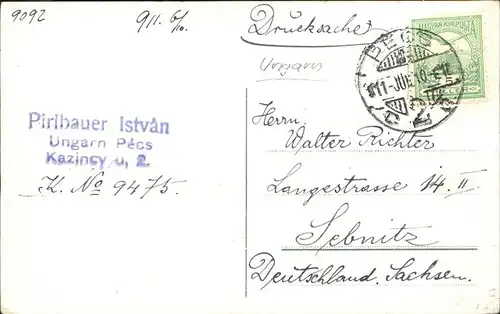 9092
911. 6/10.
Drucksache
Ungarn
MAGYAR KIR. POSTA
PÉCS
Pirlbauer István
Ungarn Pécs
Kazincy u, 2.
K. No 9475.
Herrn
Walter Richter
Langestrasse 14. II.
Sebnitz
Deutschland. Sachsen.